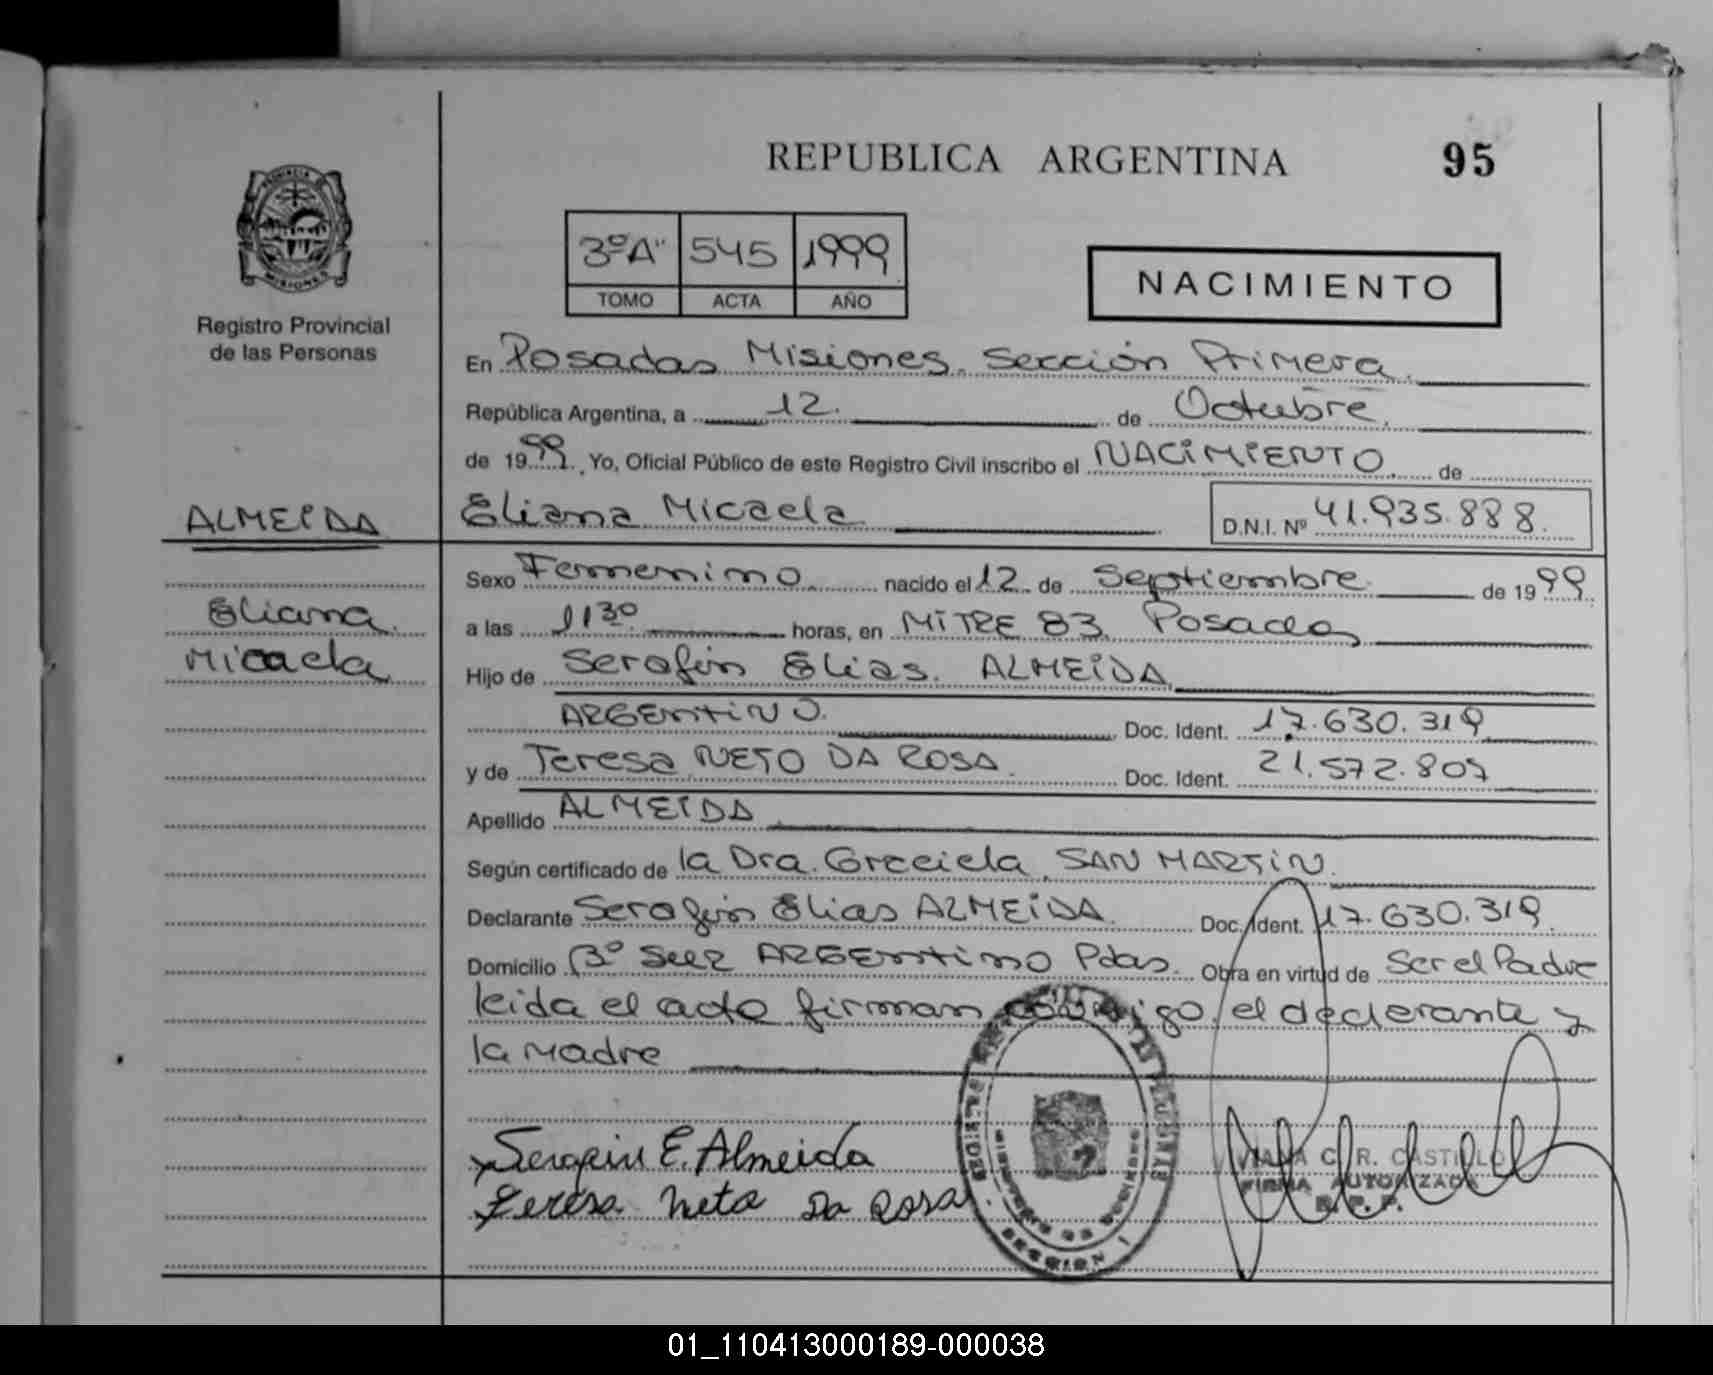 REPUBLICA ARGENTINA 95
PROVINCIA DE
MISIONES
Registro Provincial
de las Personas
3º"A" 545 1999
TOMO ACTA AÑO
NACIMIENTO
En Posadas Misiones. Sección Primera.
República Argentina, a 12. de Octubre.
de 1999. Yo, Oficial Público de este Registro Civil inscribo el NACIMIENTO de
ALMEIDA
Eliana Micaela D.N.I. Nº 41.935.888.
Sexo Femenino nacido el 12 de Septiembre de 1999.
Eliana
Micaela
a las 11 30 horas, en MITRE 83 Posadas
Hijo de Serafin Elias. ALMEIDA
ARGENTINO. Doc. Ident. 17.630.319
y de Teresa NETO DA ROSA. Doc. Ident. 21.572.807
Apellido ALMEIDA
Según certificado de la Dra. Graciela SAN MARTIN.
Declarante Serafin Elias ALMEIDA. Doc. Ident. 17.630.319.
Domicilio Bº ARGENTINO Pdas. Obra en virtud de Ser el Padre
leida el acta firman conmigo, el declarante y
la Madre
Serapin E. Almeida
Teresa Neto Da Rosa
SECCION 1
C. R. CASTILLO
FIRMA AUTORIZADA
R. P. P.
01_110413000189-000038